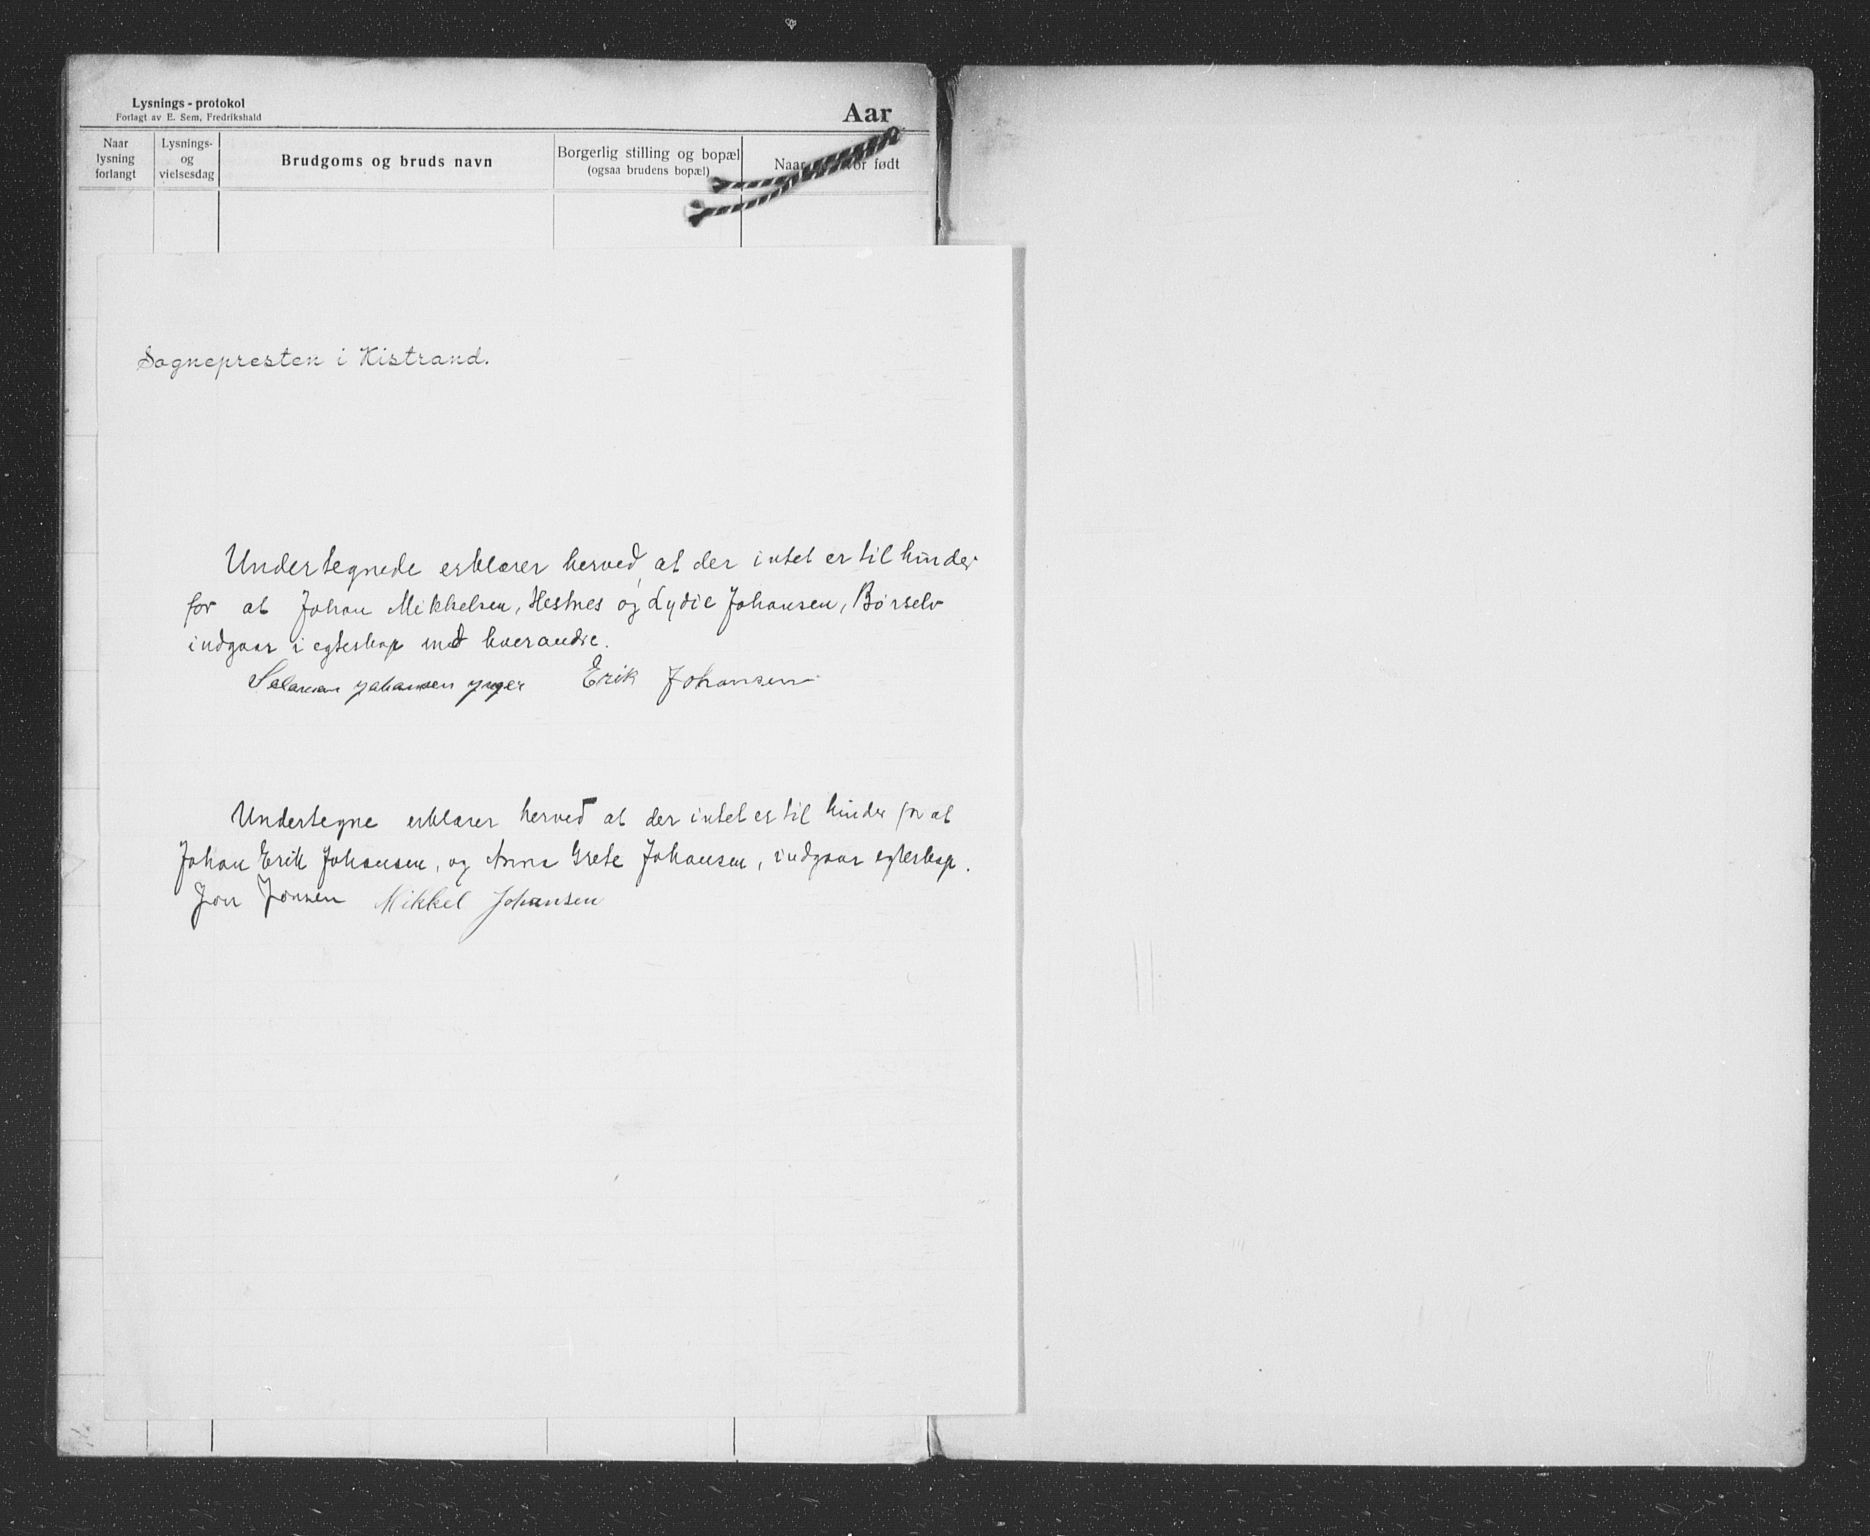 Lysnings-protokol
Forlagt av E. Sem, Fredrikshald
Aar
Naar lysning forlangt
Lysnings- og vielsesdag
Brudgoms og bruds navn
Borgerlig stilling og bopæl
(ogsaa brudens bopæl)
Naar or født
Sognepresten i Kistrand.
Undertegnede erklærer herved, at der intet er til hinder
for at Johan Mikkelsen, Hestnes og Lydie Johansen, Børselv
indgaar i egteskap med hverandre.
Salaman Johansen Erik Johansen
Undertegne erklærer herved at der intet er til hinder for at
Johan Erik Johansen, og Anna Grete Johansen, indgaar egteskap.
Jon Jonsen Mikkel Johansen